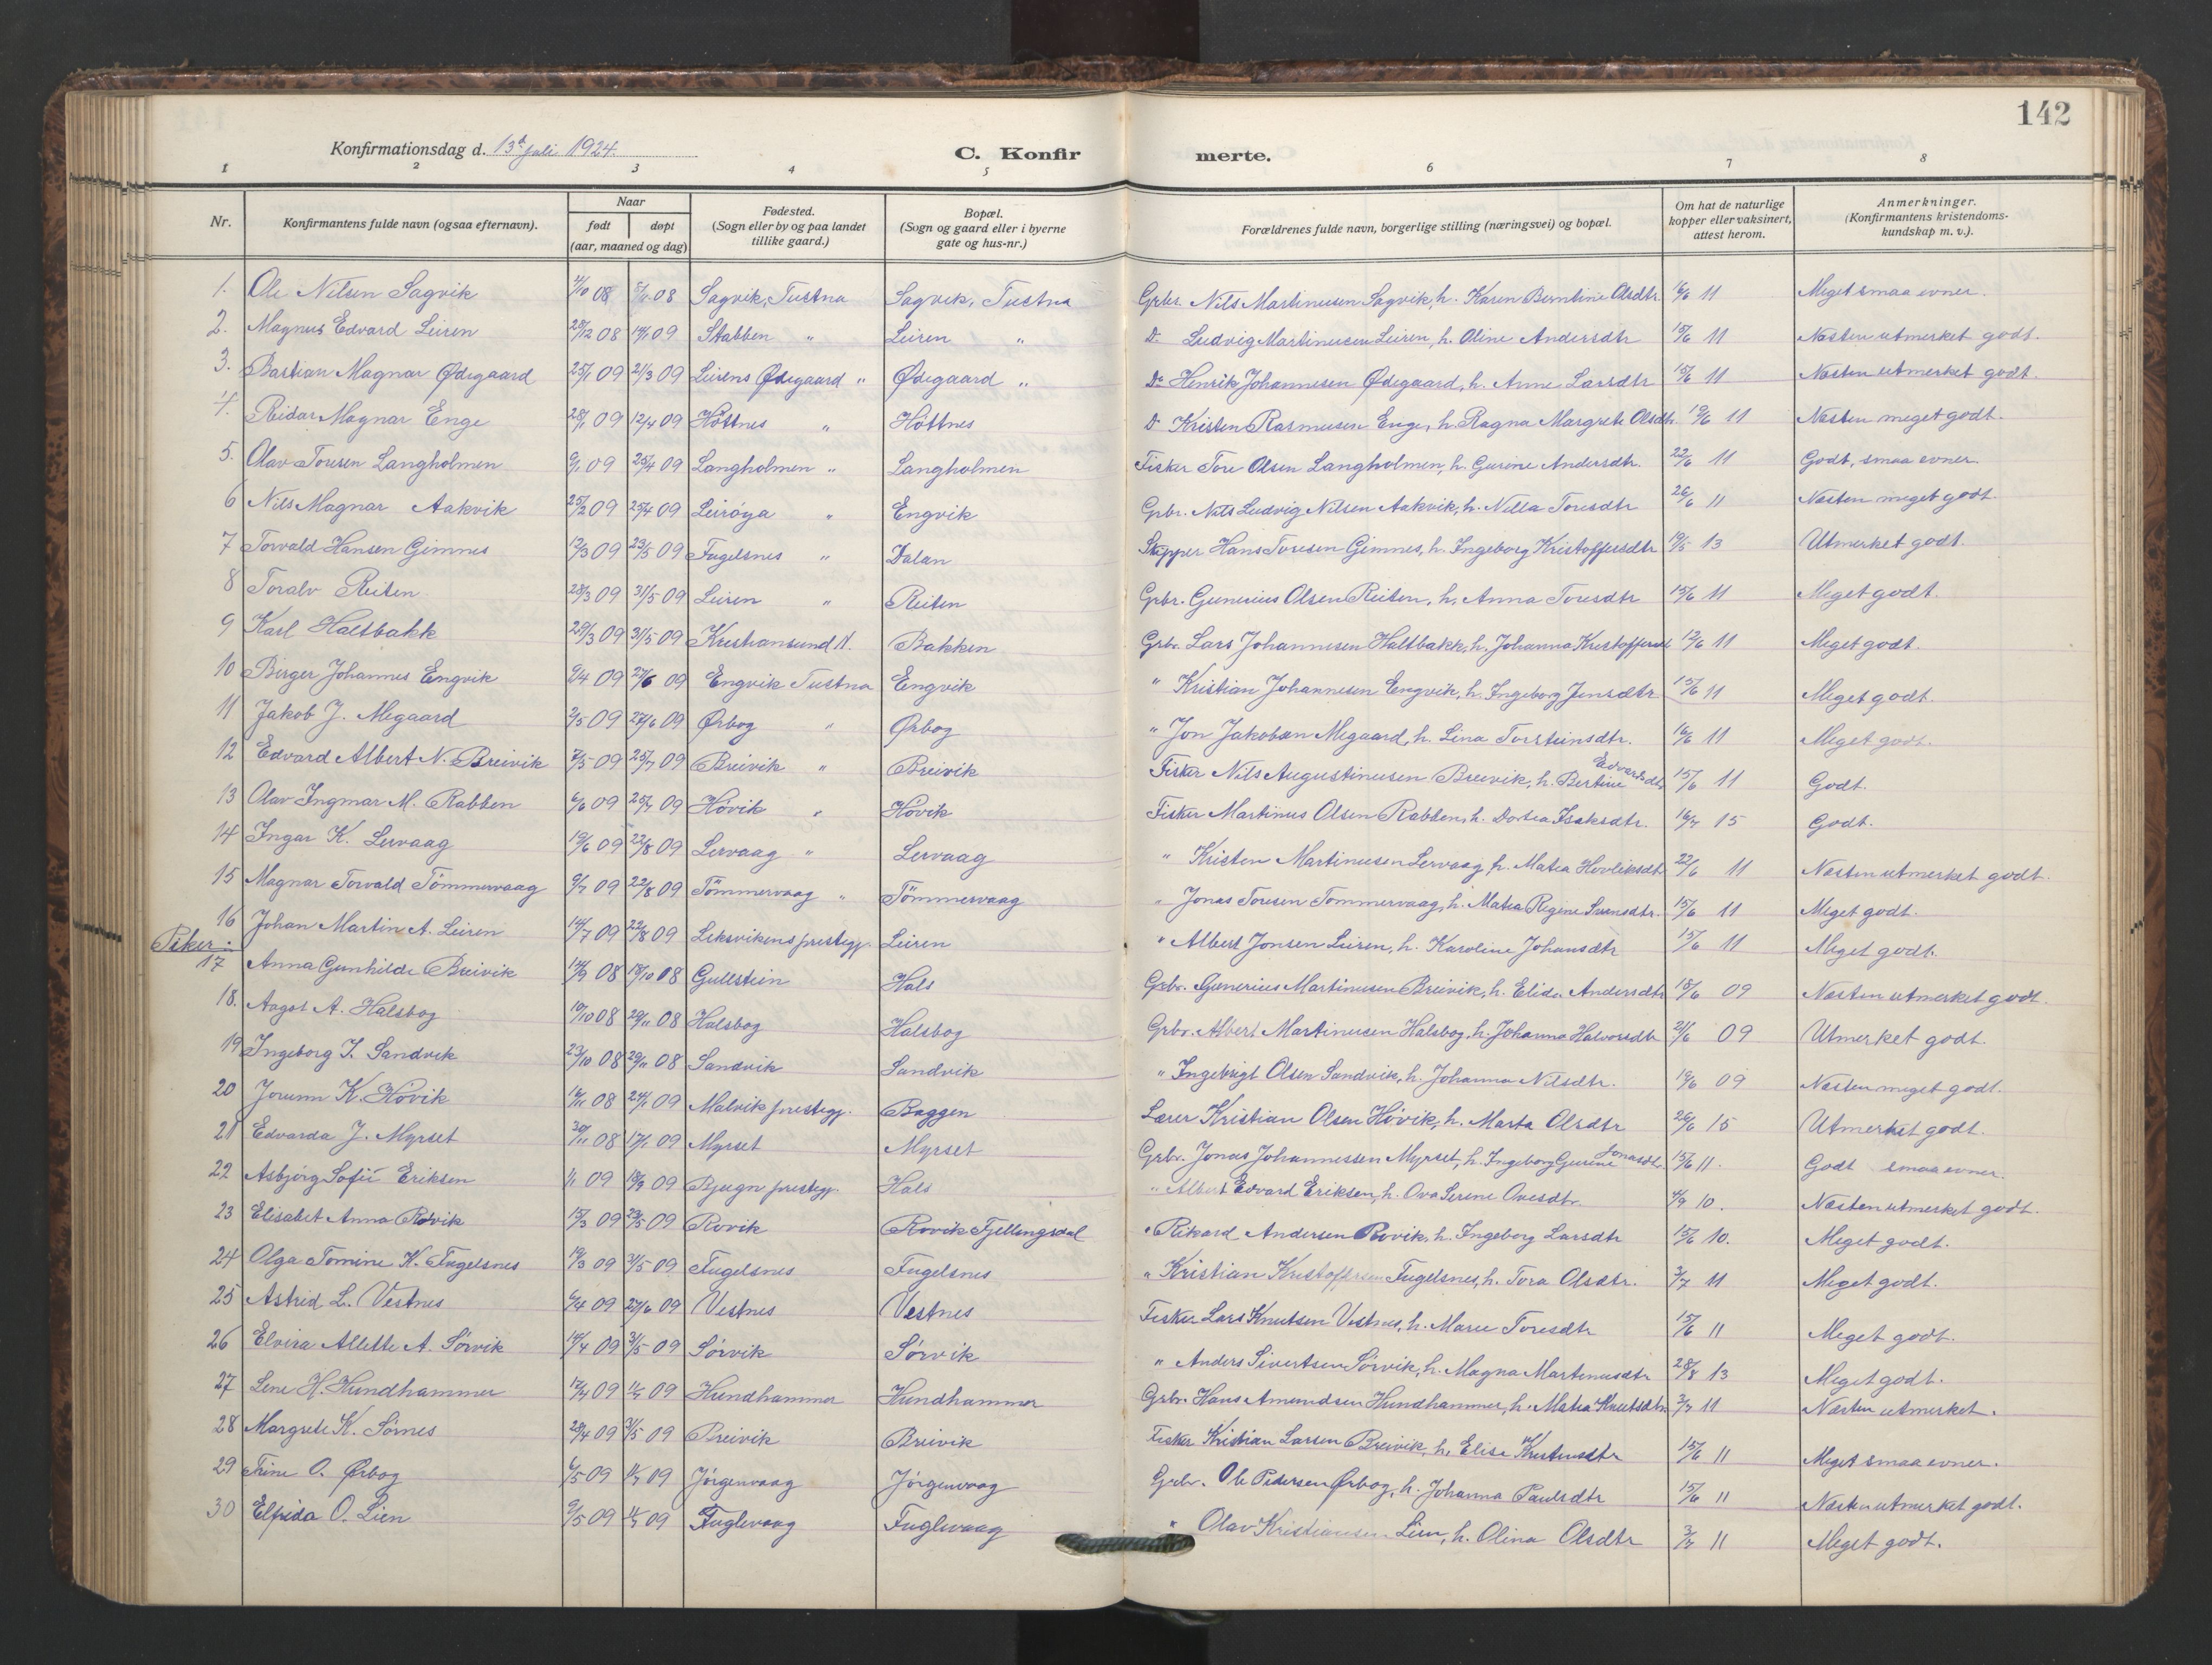 142
Konfirmationsdag d. 13d juli 1924.
C. Konfirmerte.
1 2 3 4 5 6 7 8
Nr. | Konfirmantens fulde navn (ogsaa efternavn). | Naar født døpt (aar, maaned og dag) | Fødested. (Sogn eller by og paa landet tillike gaard.) | Bopæl. (Sogn og gaard eller i byerne gate og hus-nr.) | Forældrenes fulde navn, borgerlige stilling (næringsvei) og bopæl. | Om hat de naturlige kopper eller vaksinert, attest herom. | Anmerkninger. (Konfirmantens kristendomskundskap m. v.).
1. Ole Nilsen Sagvik 08 08 Sagvik, Tustna Sagvik, Tustna Grbr. Nils Martinusen Sagvik, h. Karen Berntine Olsdtr. 16/6 11 Meget smaa evner.
2. Magnus Edvard Leiren 28/12 08 14/1 09 Stabben " Leiren " Do Ludvig Martinusen Leiren, h. Oline Andersdtr 15/6 11 Næsten utmerket godt.
3. Bastian Magnar Ødegaard 25/1 09 21/3 09 Leirens Ødegaard " Ødegaard " Do Henrik Johannesen Ødegaard, h. Anne Larsdtr 15/6 11 Næsten utmerket godt.
4. Reidar Magnar Enge 28/1 09 12/4 09 Höttnes " Höttnes Do Kristen Rasmusen Enge, h. Ragna Margrete Olsdtr. 19/6 11 Næsten meget godt.
5. Olav Toresen Langholmen 9/1 09 25/4 09 Langholmen " Langholmen Fisker Tore Olsen Langholmen, h. Gurine Andersdtr. 22/6 11 Godt, smaa evner.
6 Nils Magnar Aakvik 25/2 09 25/4 09 Leirøya " Engvik Grbr. Nils Ludvig Nilsen Aakvik, h. Nella Toresdtr 26/6 11 Næsten meget godt.
7 Torvald Hansen Gimnes 12/3 09 23/5 09 Fugelsnes " Dalan Skipper Hans Toresen Gimnes, h. Ingeborg Kristoffersdtr 19/5 13 Utmerket godt.
8 Toralv Reiten 28/3 09 31/5 09 Leiren " Reiten Grbr. Gunerius Olsen Reiten, h. Anna Toresdtr 15/6 11 Meget godt.
9 Karl Haltbakk 29/3 09 31/5 09 Kristiansund N. Bakken Grbr. Lars Johannesen Haltbakk, h. Johanna 12/6 11 Meget godt.
10 Birger Johannes Engvik 9/4 09 27/6 09 Engvik Tustna Engvik " Kristian Johannesen Engvik, h. Ingeborg Jensdtr 15/6 11 Meget godt.
11 Jakob J. Megaard 2/5 09 27/6 09 Ørbog " Ørbog " Jon Jakobsen Megaard, h. Lina Torsteinsdtr. 16/6 11 Meget godt.
12 Edvard Albert N. Breivik 7/5 09 25/7 09 Breivik " Breivik Fisker Nils Augustinusen Breivik, h. Bertine Edvardsdtr 15/6 11 Godt.
13 Olav Ingmar M. Rabben 6/6 09 25/7 09 Hövik " Hövik Fisker Martinus Olsen Rabben, h. Dortea Isaksdtr. 16/7 15 Godt.
14 Ingar K. Lervaag 19/6 09 22/8 09 Lervaag " Lervaag " Kristen Martinusen Lervaag, h. Matea 22/6 11 Næsten utmerket godt.
15 Magnar Torvald Tömmervaag 9/7 09 22/8 09 Tömmervaag " Tömmervaag " Jonas Toresen Tommervaag, h. Matea Regine Svensdtr. 15/6 11 Meget godt.
16 Johan Martin A. Leiren 14/7 09 22/8 09 Leksvikens prestegj. Leiren " Albert Jonsen Leiren, h. Karoline Johansdtr 15/6 11 Meget godt.
Piker:
17 Anna Gunhilde Breivik 14/9 08 18/10 08 Gullstein Hals Grbr. Gunerius Martinusen Breivik, h. Elida Andersdtr 18/6 09 Næsten utmerket godt.
18. Aagot A. Halsbog 19/10 08 29/11 08 Halsbog Halsbog Grbr. Albert Martinusen Halsbog, h. Johanna Halvorsdtr 21/6 09 Utmerket godt.
19 Ingeborg I. Sandvik 23/10 08 29/11 08 Sandvik Sandvik " Ingebrigt Olsen Sandvik, h. Johanna Nilsdtr. 19/6 09 Næsten meget godt.
20 Jorunn K. Hövik 14/11 08 24/1 09 Malvik prestegj. Baggen Lærer Kristian Olsen Hövik, h. Marta Olsdtr 26/6 15 Utmerket godt.
21 Edvarda J. Myrset 30/11 08 17/1 09 Myrset Myrset Grbr. Jonas Johannessen Myrset, h. Ingeborg Gurine Jonasdtr 15/6 11. Godt smaa evner.
22 Asbjørg Sofie Eriksen 1/1 09 09 Bjugn prestegj. Hals " Albert Edvard Eriksen, h. Ova Serine Ovesdtr 4/9 10. Næsten utmerket godt.
23 Elisabet Anna Rovik 15/3 09 23/5 09 Rovik Rovik Fjellingsdal " Rikard Andersen Rovik, h. Ingeborg Larsdtr 15/6 10. Meget godt.
24 Olga Tomine K. Fugelsnes 19/3 09 31/5 09 Fugelsnes Fugelsnes " Kristian Kristoffersen Fugelsnes, h. Tora Olsdtr. 3/7 11 Meget godt.
25 Astrid L. Vestnes 6/4 09 27/6 09 Vestnes Vestnes Fisker Lars Knutsen Vestnes, h. Marie Toresdtr 15/6 11 Meget godt.
26 Elvira Allette A. Sörvik 14/4 09 31/5 09 Sörvik Sörvik " Anders Sivertsen Sörvik, h. Magna Martinusdtr 28/8 13 Meget godt.
27 Lene H. Hundhammer 17/4 09 11/7 09 Hundhammer Hundhammer Grbr. Hans Amundsen Hundhammer, h. Matea Knutsdtr 3/7 11 Næsten utmerket.
28 Margrete K. Sörnes 28/4 09 31/5 09 Breivik Breivik Fisker Kristian Larsen Breivik, h. Elise 15/6 11 Meget smaa evner.
29 Trine O. Ørbog 6/5 09 11/7 09 Jörgenvaag Jörgenvaag Grbr. Ole Pedersen Ørbog, h. Johanna Paulsdtr 15/6 11 Næsten utmerket godt.
30 Elfrida O. Lien 9/5 09 11/7 09 Fuglevaag Fuglevaag " Olav Kristiansen Lien, h. Olina Olsdtr 3/7 11 Meget godt.